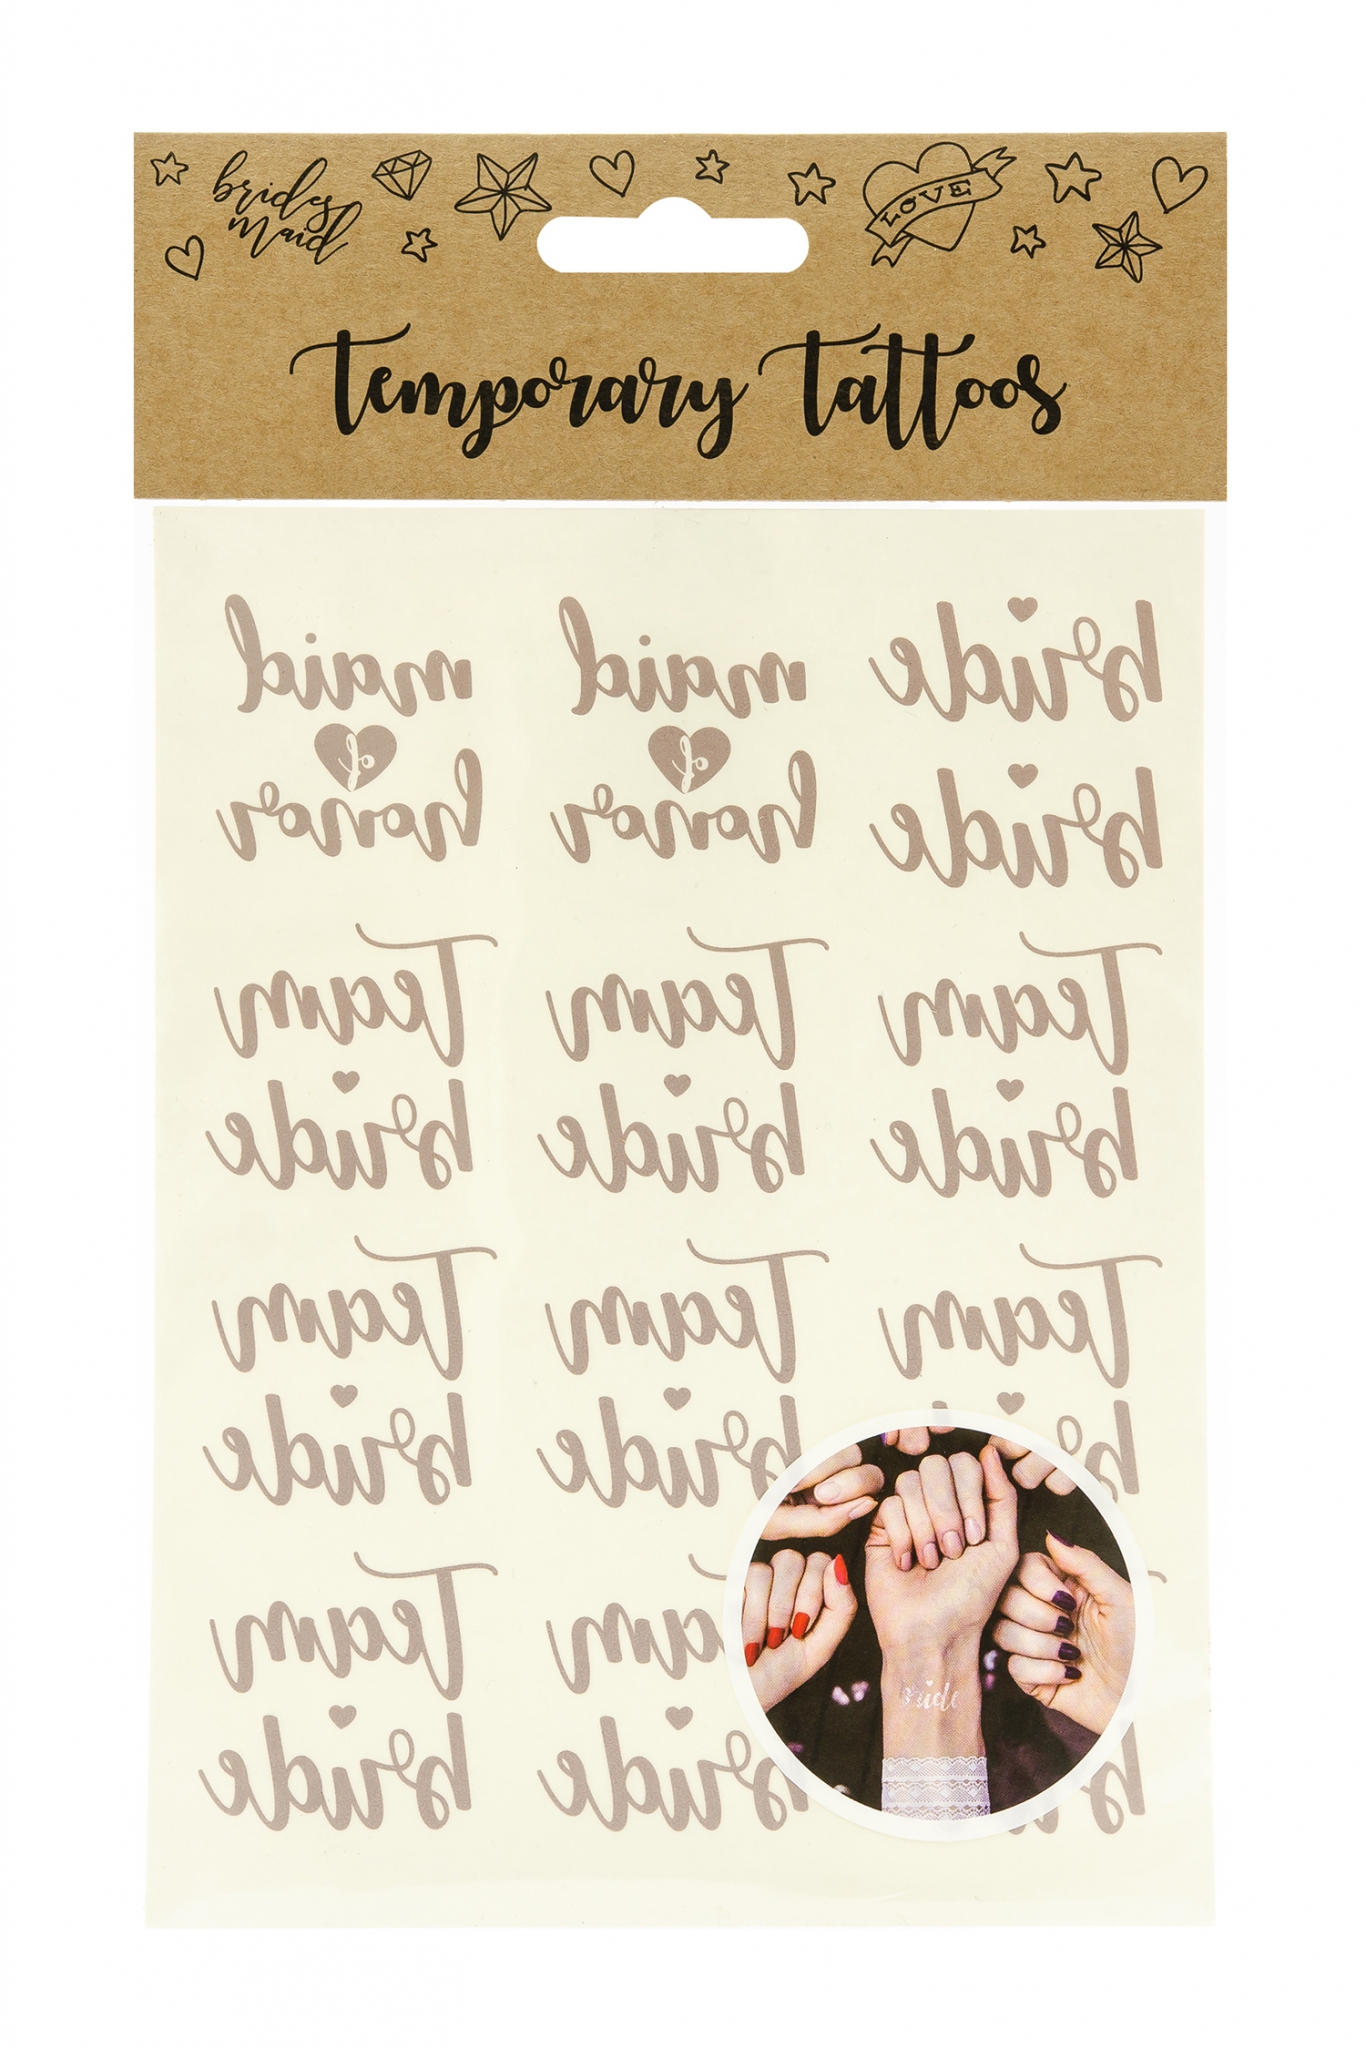 brides
maid
LOVE
temporary tattoos
maid
of
honor
maid
of
honor
bride
bride
Team
bride
Team
bride
Team
bride
Team
bride
Team
bride
Team
Team
bride
Team
bride
bride